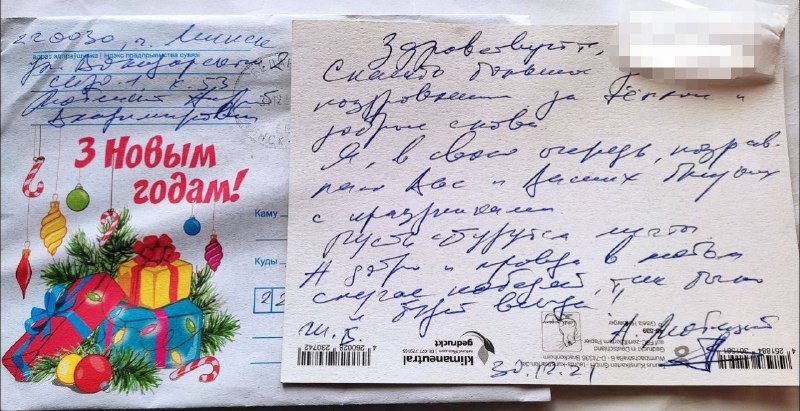 220030, г. Минск
ул. Володарского 2
СИЗО-1, к. 53
Владимирович
З Новым
годам!
Каму
Куды
22
Здравствуйте,
Спасибо большое
за тёплые и
добрые слова
Я, в свою очередь, поздрав-
ляю Вас и Ваших близких
с праздниками.
Пусть сбудутся мечты
А добро и правда в любом
случае победят, так было
и будет всегда
30.12.21
klimaneutral
gedruckt
4 260028 230742
4 251884 301561